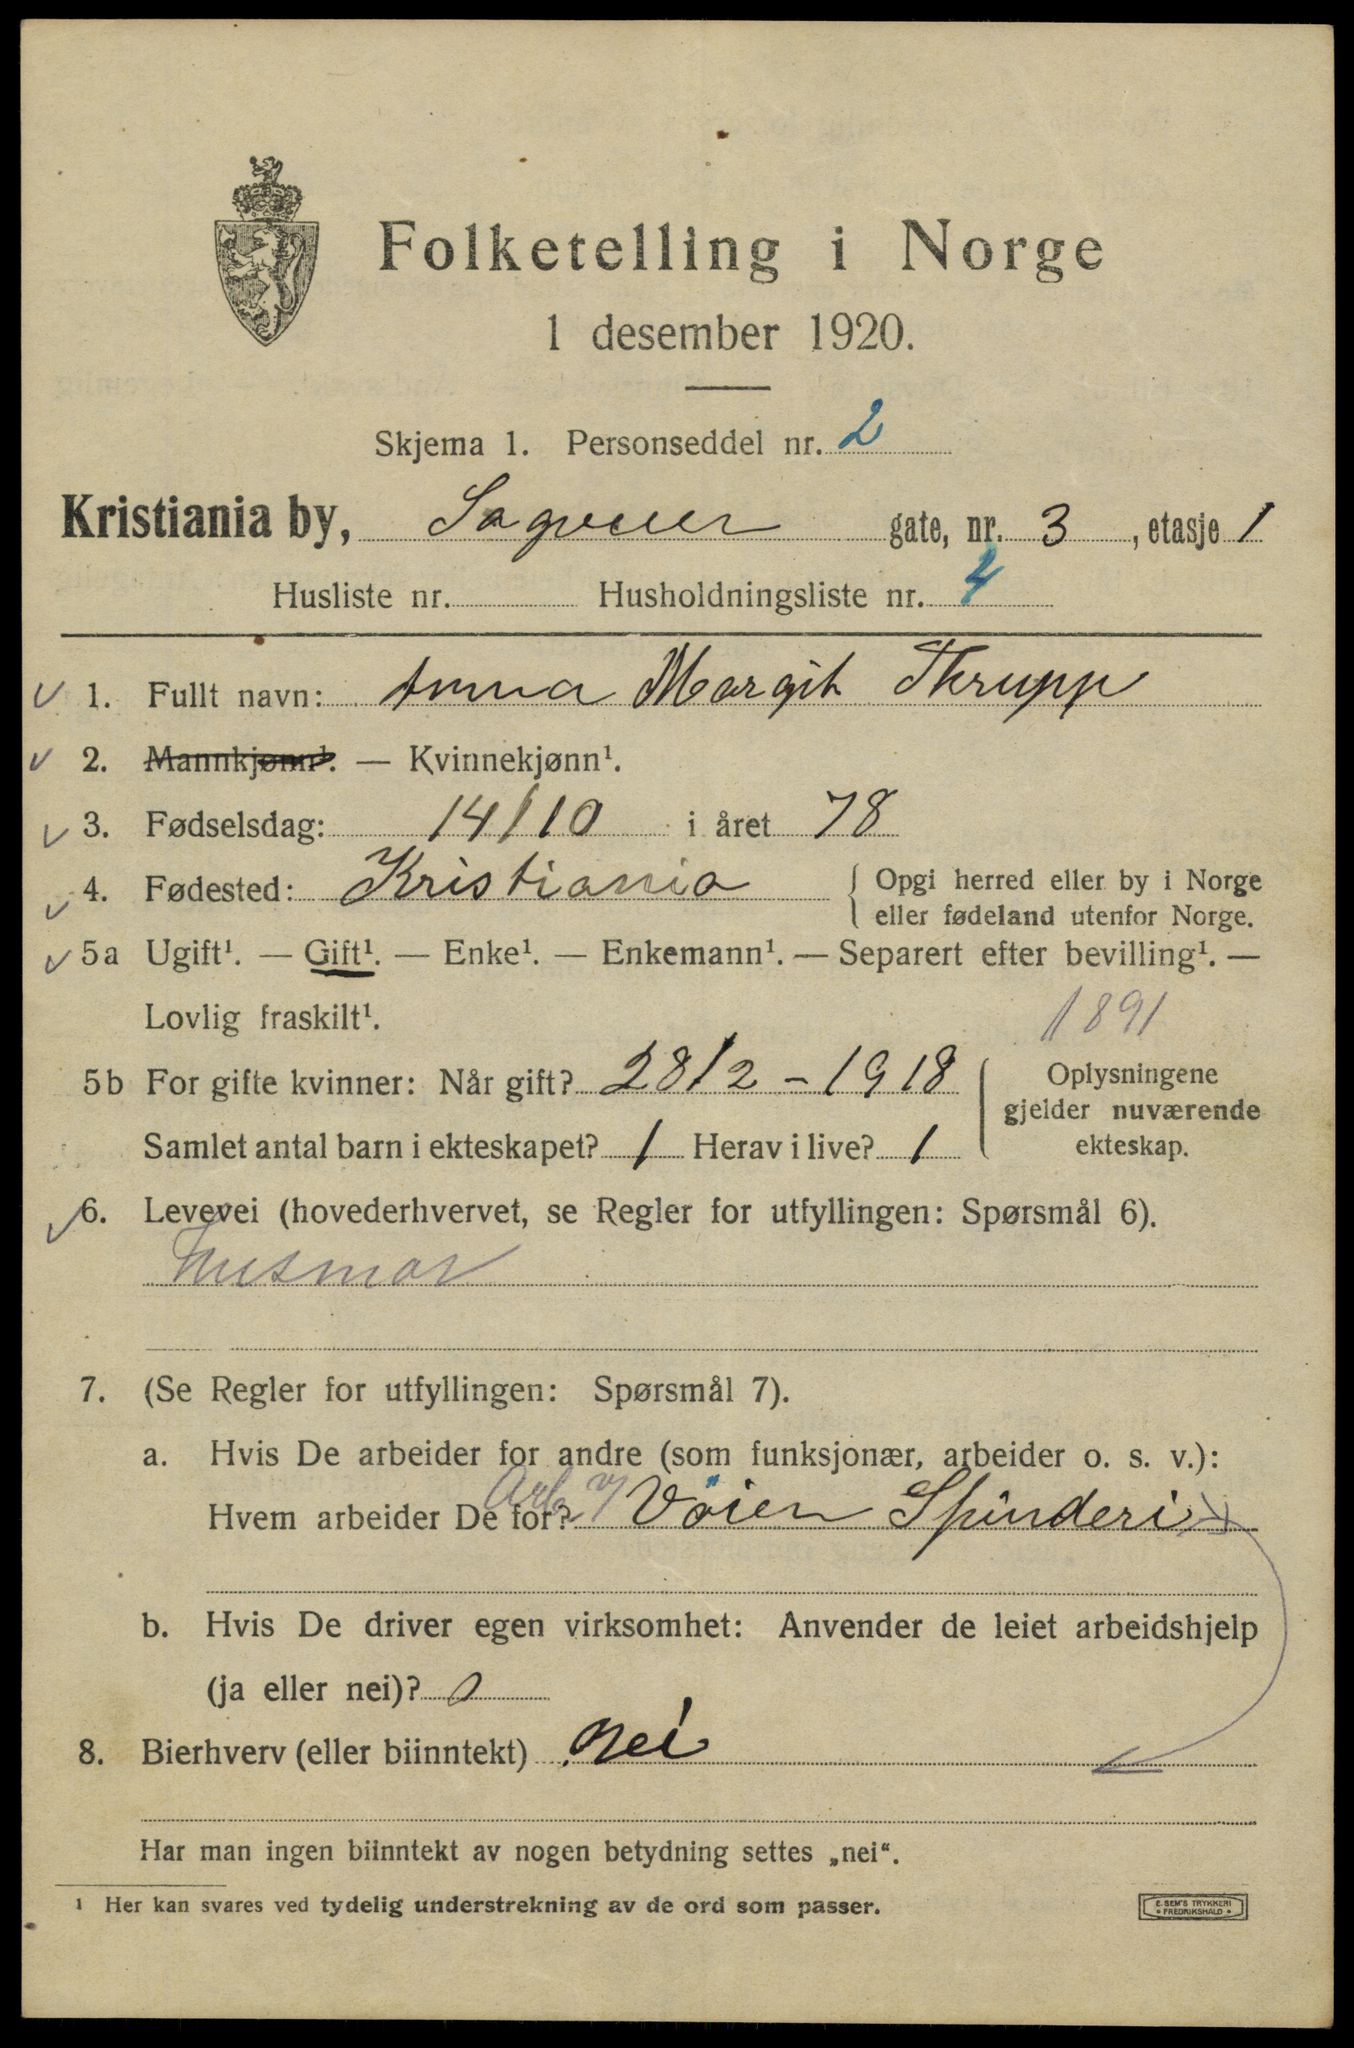 Folketelling i Norge
1 desember 1920.
Skjema 1. Personseddel nr. 2
Kristiania by, Sagveien gate, nr. 3, etasje 1
Husliste nr. Husholdningsliste nr. 4
1. Fullt navn: Anna Margit Thrupp
2. Mannkjønn¹. — Kvinnekjønn¹.
3. Fødselsdag: 14/10 i året 78
4. Fødested: Kristiania { Opgi herred eller by i Norge
eller fødeland utenfor Norge.
5a Ugift¹. — Gift¹. — Enke¹. — Enkemann¹. — Separert efter bevilling¹. —
Lovlig fraskilt¹.
1891
5b For gifte kvinner: Når gift? 28/2 - 1918 { Oplysningene
gjelder nuværende
ekteskap.
Samlet antal barn i ekteskapet? 1 Herav i live? 1
6. Levevei (hovederhvervet, se Regler for utfyllingen: Spørsmål 6).
Husmor
7. (Se Regler for utfyllingen: Spørsmål 7).
a. Hvis De arbeider for andre (som funksjonær, arbeider o. s. v.):
Hvem arbeider De for? Arb. v/ Vöien Spinderi
b. Hvis De driver egen virksomhet: Anvender de leiet arbeidshjelp
(ja eller nei)? 0
8. Bierhverv (eller biinntekt) nei
Har man ingen biinntekt av nogen betydning settes „nei“.
¹ Her kan svares ved tydelig understrekning av de ord som passer.
E. SEM'S TRYKKERI
FREDRIKSHALD